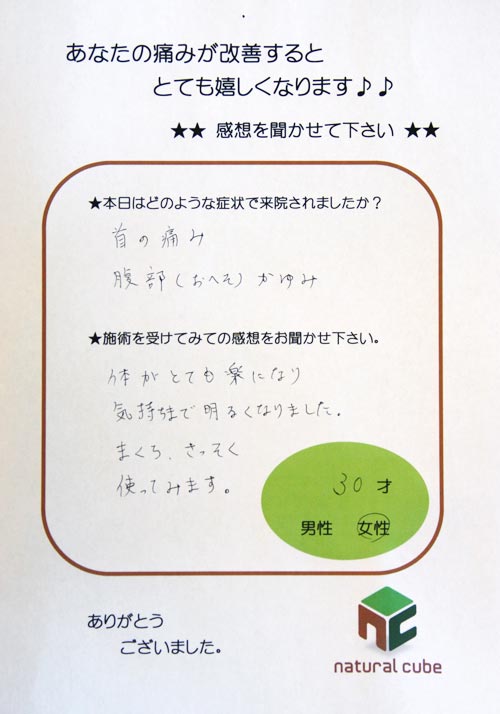 あなたの痛みが改善すると
とても嬉しくなります♪♪
★★ 感想を聞かせて下さい ★★
★本日はどのような症状で来院されましたか？
首の痛み
腹部(おへそ)かゆみ
★施術を受けてみての感想をお聞かせ下さい。
体がとても楽になり
気持ちまで明るくなりました。
まくら、さっそく
使ってみます。
30 才
男性 女性
ありがとう
ございました。
nc
natural cube